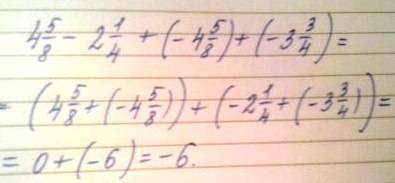 4 5/8 - 2 1/4 + (-4 5/8) + (-3 3/4) =
= (4 5/8 + (-4 5/8)) + (-2 1/4 + (-3 3/4) =
= 0 + (-6) = -6.